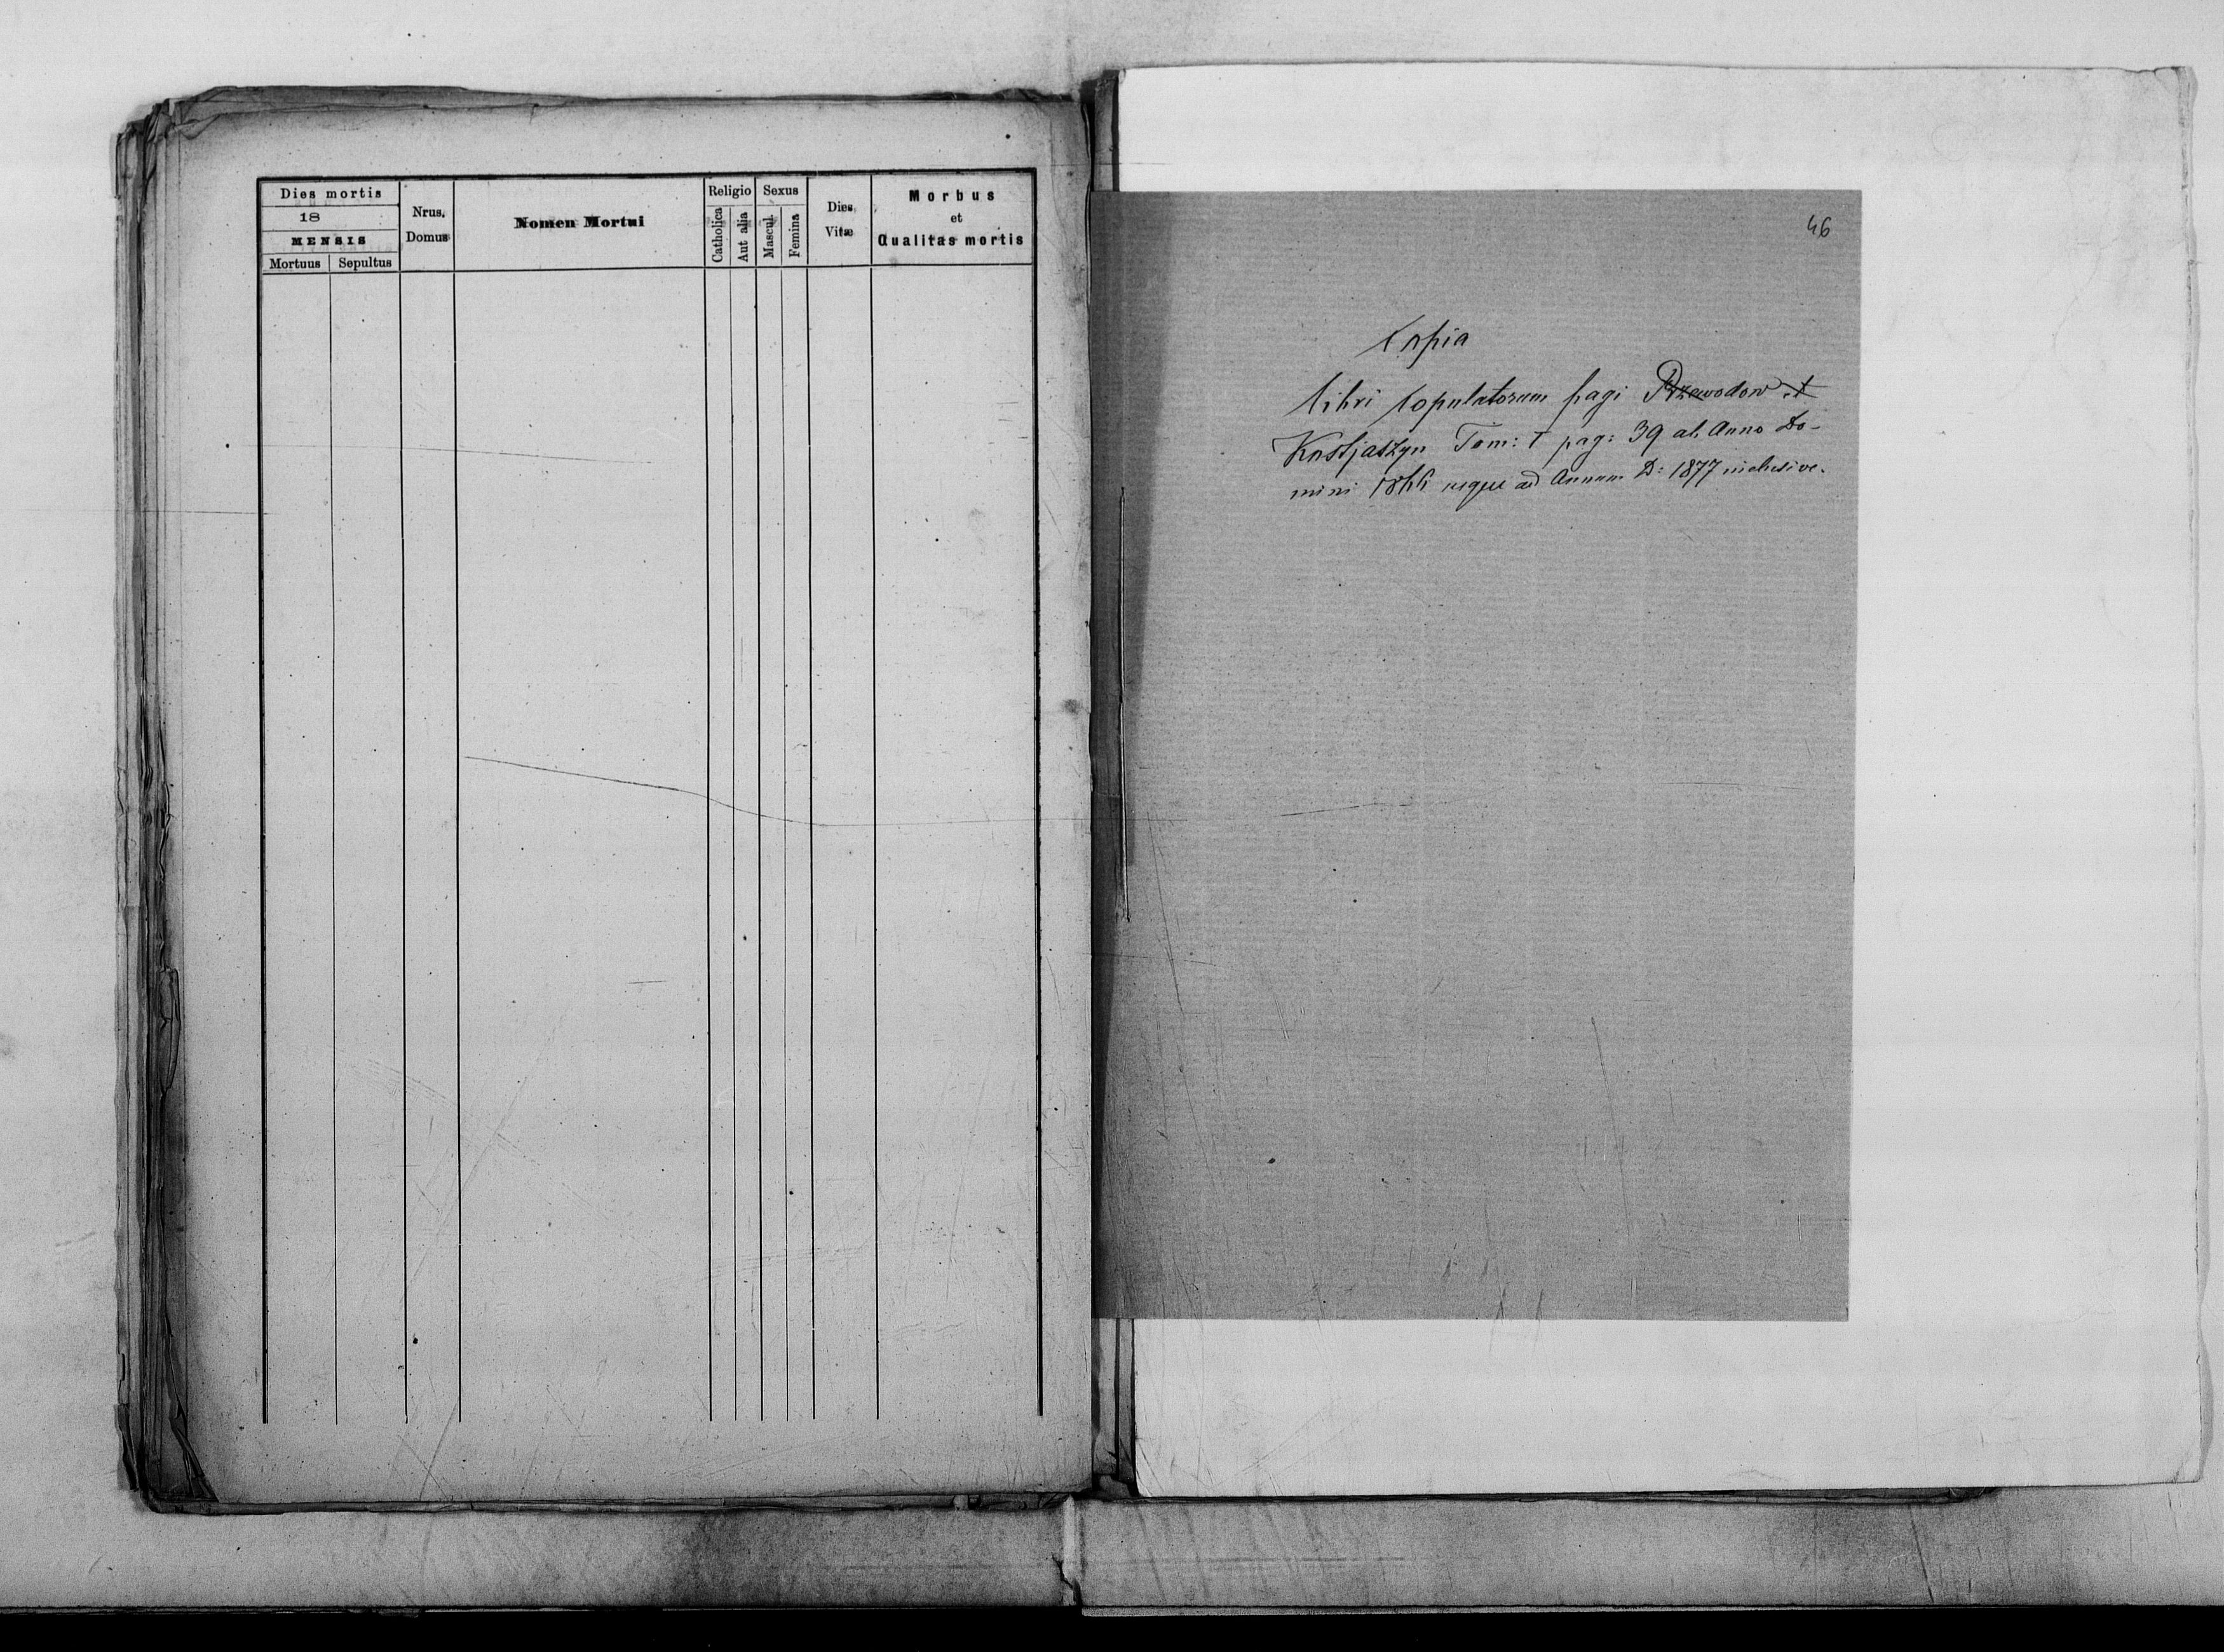 Dies mortis
18
MENSIS
Mortuus Sepultus
Nrus. Domus
Nomen Mortui
Religio
Catholica
Aut alia
Sexus
Mascul.
Femina
Dies Vitæ
Morbus
et
Qualitas mortis
46
Copia
Libri Copulatorum pagi Przewodow et
Kostjaszyn Tom: I pag: 39 ab Anno Do-
mini usque ad Annum D: 1877 inclusive.